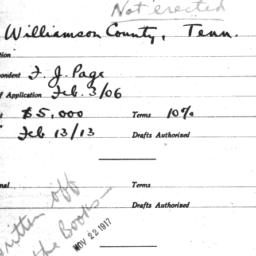 Not erected
Williamson County, Tenn.
tion
ondent F. J. Page
f Application Feb. 3/06
t $5,000 Terms 10%
Feb 13/13 Drafts Authorised
nal Terms
Drafts Authorised
written off
the Books
NOV 22 1917